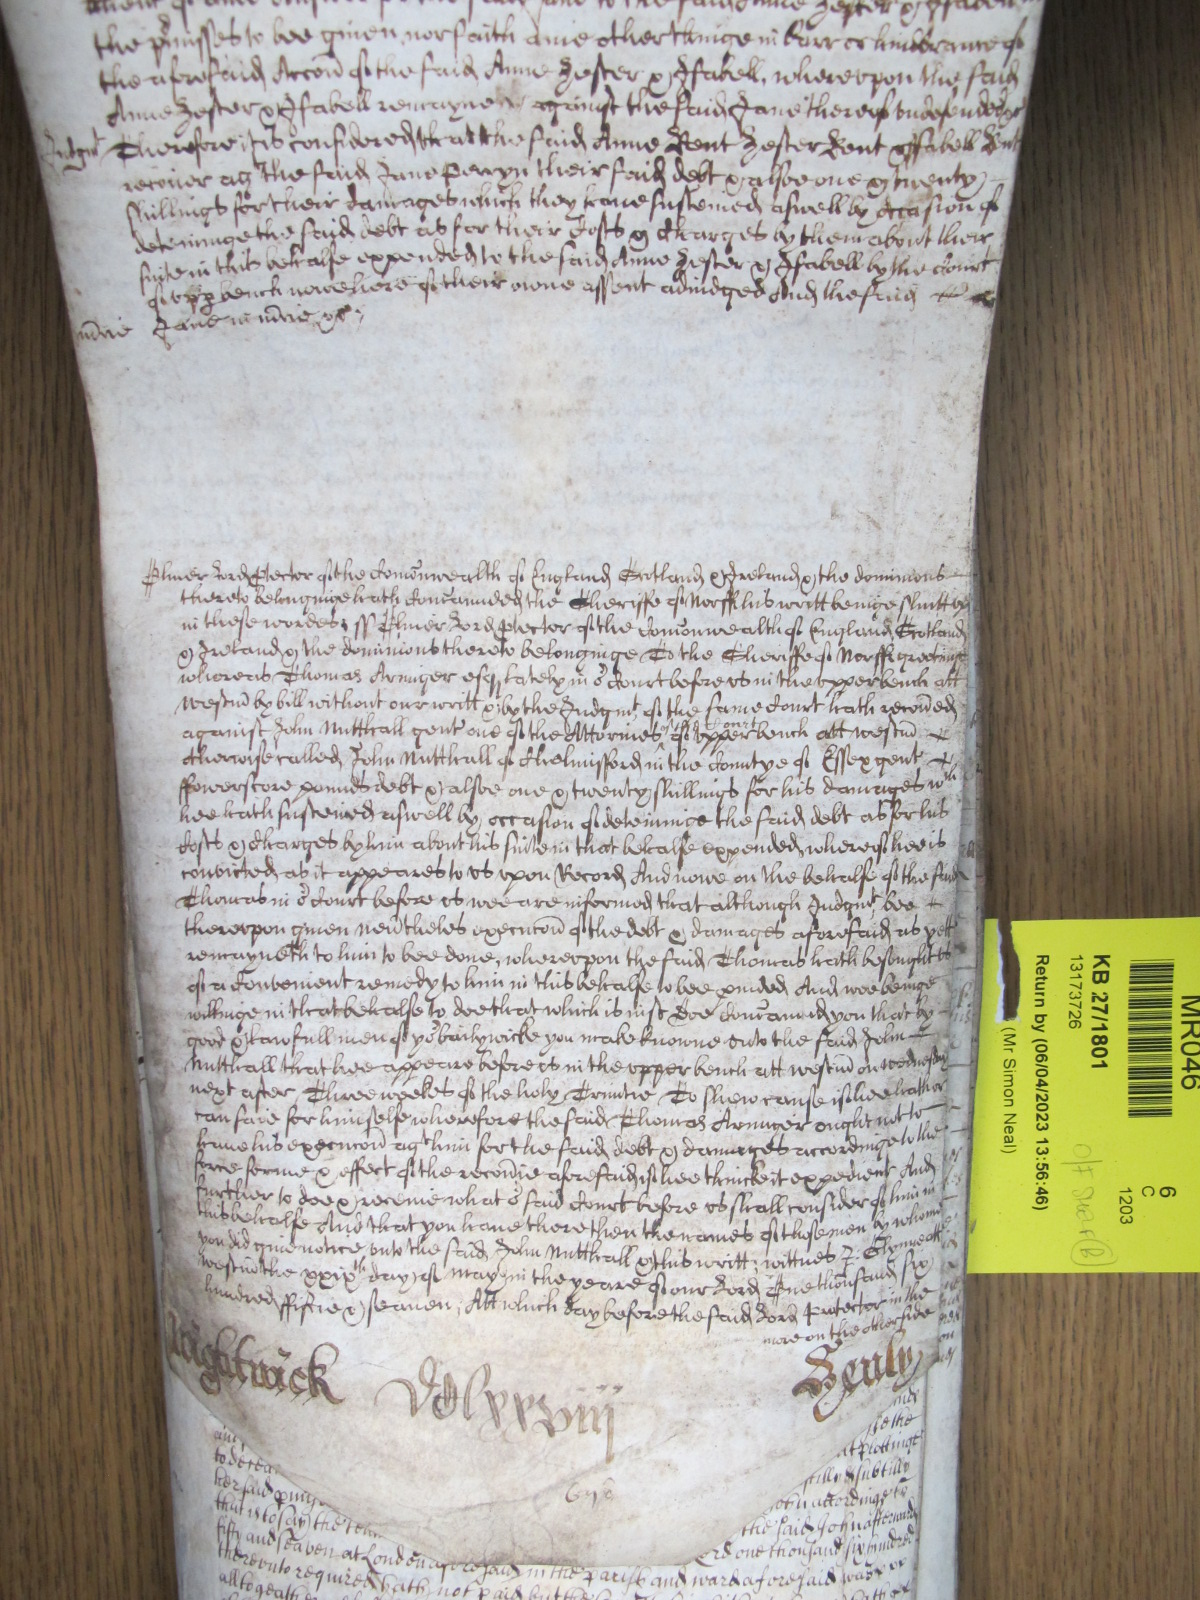 the p'misses to bee given, nor saith anie other thinge in barr or hinderance of
the aforesaid Accon of the said Anne Hester & Isabell, whereupon the said
Anne Hester & Isabell remayne against the said Jane thereof undefended
Judgmt Therefore it is considered that the said Anne Kent Hester Kent & Isabell Kent
recover agt the said Jane Perryn their said debt & alsoe one & twenty
shillings for their damages which they have susteined aswell by occasion of
deteininge the said debt as for their Costs & Charges by them about their
suite in this behalfe expended to the said Anne Hester & Isabell by the Court
of upp bench nowe here of their owne assent adiudged And the said
m'cie Jane in m'cie &c
Oliver Lord P'tector of the Comonwealth of England Scotland & Ireland & the dominions
thereto belonginge hath Comaunded the Sheriffe of Norff his writt beinge shutt up
in these wordes ss Oliver Lord P'tector of the Comonwealth of England Scotland
& Ireland & the dominions thereto belonginge To the Sheriffe of Norff greetinge
whereas Thomas Armiger esq lately in or Court before us in the upper bench att
Westm by bill without our writt & by the Judgmt of the same Court hath recoued
against John Nutthall gent one of the Attornies of the Court of upper bench att westm
otherwise called John Nutthall of Chelmisford in the Countye of Essex gent
ffowerscore pounds debt & alsoe one & twenty shillings for his damages wch
hee hath susteined aswell by occasion of deteininge the said debt as for his
Costs & Charges by him about his suite in that behalfe expended, whereof hee is
convicted as it appeares to us upon Record And nowe on the behalfe of the said
Thomas in or Court before us wee are informed that although Judgmt bee
thereupon given nev'theles execucon of the debt & damages aforesaid as yett
remayneth to him to bee done, whereupon the said Thomas hath besought us
of a Convenient remedy to him in this behalfe to bee p'vided And wee beinge
willinge in that behalfe to doe that which is iust Doe Comaund you that by
good & lawfull men of yor bailywicke you make knowne unto the said John
Nutthall that hee appeare before us in the upper bench att westm on wednesday
next after Three weekes of the holy Trinitie To shew cause if hee hath or
can saie for himselfe wherefore the said Thomas Armiger ought not to
have his execucon agt him for the said debt & damages accordinge to the
force forme & effect of the recou'ie aforesaid if hee thinke it expedient And
further to doe & receive what or said Court before us shall consider of him in
this behalfe And that you have there then the names of those men by whome
you did give notice unto the said John Nutthall & this writt, wittnes J. Glynne att
westm the xxixth day of May in the yeare of our Lord One thousand six
hundred ffiftie & seaven, Att which day before the said Lord Protector in the
more on the otherside
Wightwick
Zealy
to
her said
that is to say the
fifty and seaven at London aforesaid in the parish and ward aforesaid was
thereunto required hath not paid
altogeather
the
subtilly
John accordinge to
the said John afterwards
one thousand six hundred
MR046
6
C
1203
KB 27/1801
13173726
Return by (06/04/2023 13:56:46)
(Mr Simon Neal)